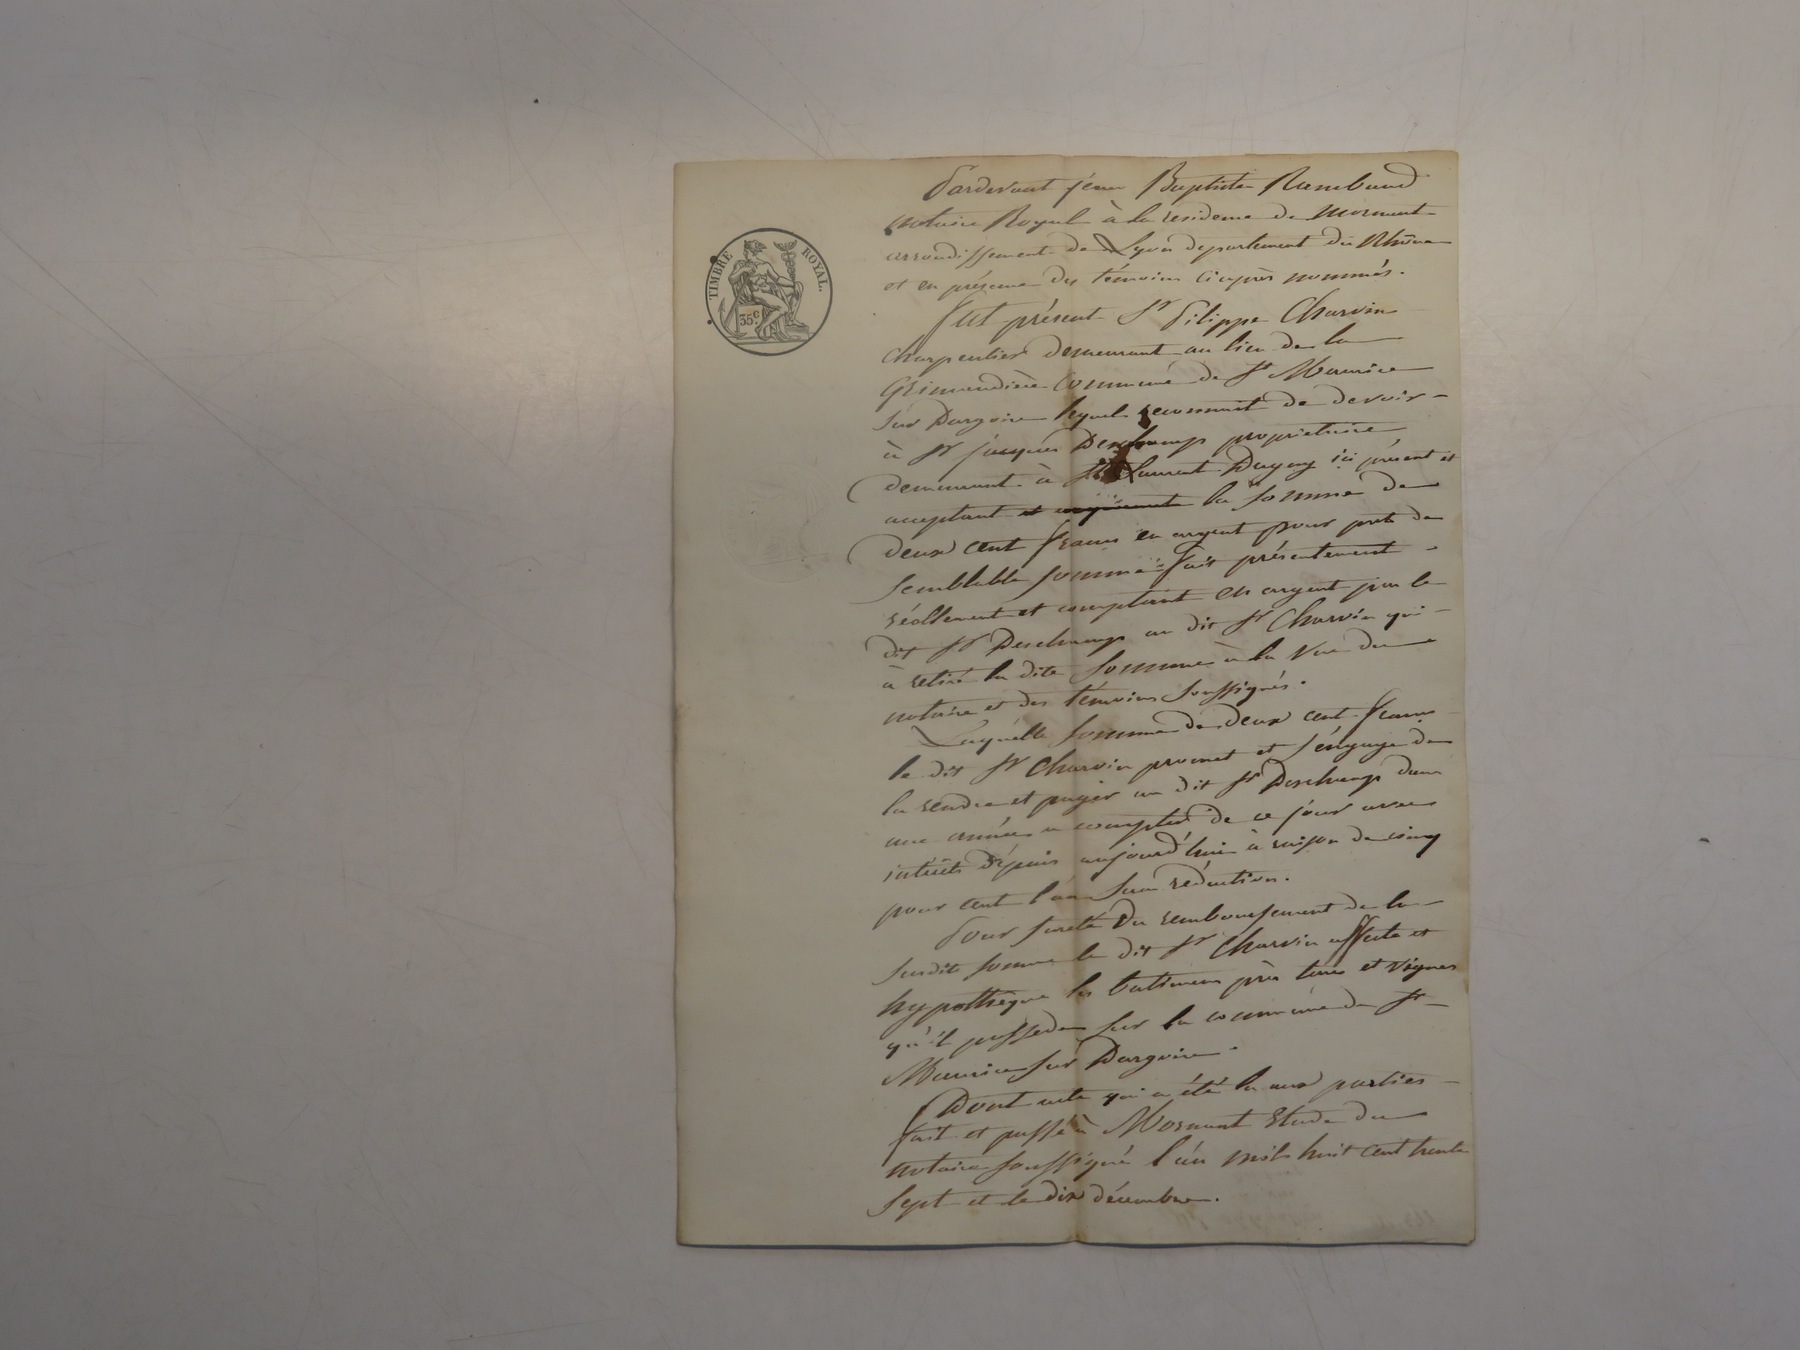 TIMBRE ROYAL.
35c
Pardevant jean Baptiste Rambaud
notaire Royal à la residence de Mornant
arrondissement de Lyon departement du Rhône
et en présence des témoins ciaprès nommés.
fut présent Sr Pilippe Charvin
charpentier demeurant au lieu de la
commune de St Maurice
sur Dargoire lequel reconnait de devoir
à Sr jacques Deschamp proprietaire
demeurant à St Laurent Dagny ici présent et
acceptant et la somme de
deux cent francs en argent pour prêt de
semblable somme fait présentement
réellement et comptant en argent par le
dit Sr Deschamp au dit Sr Charvin qui
à retiré la dite somme à la vue du
notaire et des témoins soussignés.
Laquelle somme de deux cent francs
le dit Sr Charvin promet et s'engage de
la rendre et payer au dit Sr Deschamp dans
une année a compter de ce jour avec
intérêts depuis aujourd'hui à raison de cinq
pour cent l'an sans réduction.
Pour sureté du remboursement de la
susdite somme le dit Sr Charvin affecte et
hypothèque les batimens près terres et vignes
qu'il possede sur la commune de St
Maurice sur Dargoire.
Dont acte qui a été lu aux parties
fait et passé à Mornant Etude du
notaire soussigné l'an mil huit cent trente
sept et le dix décembre.